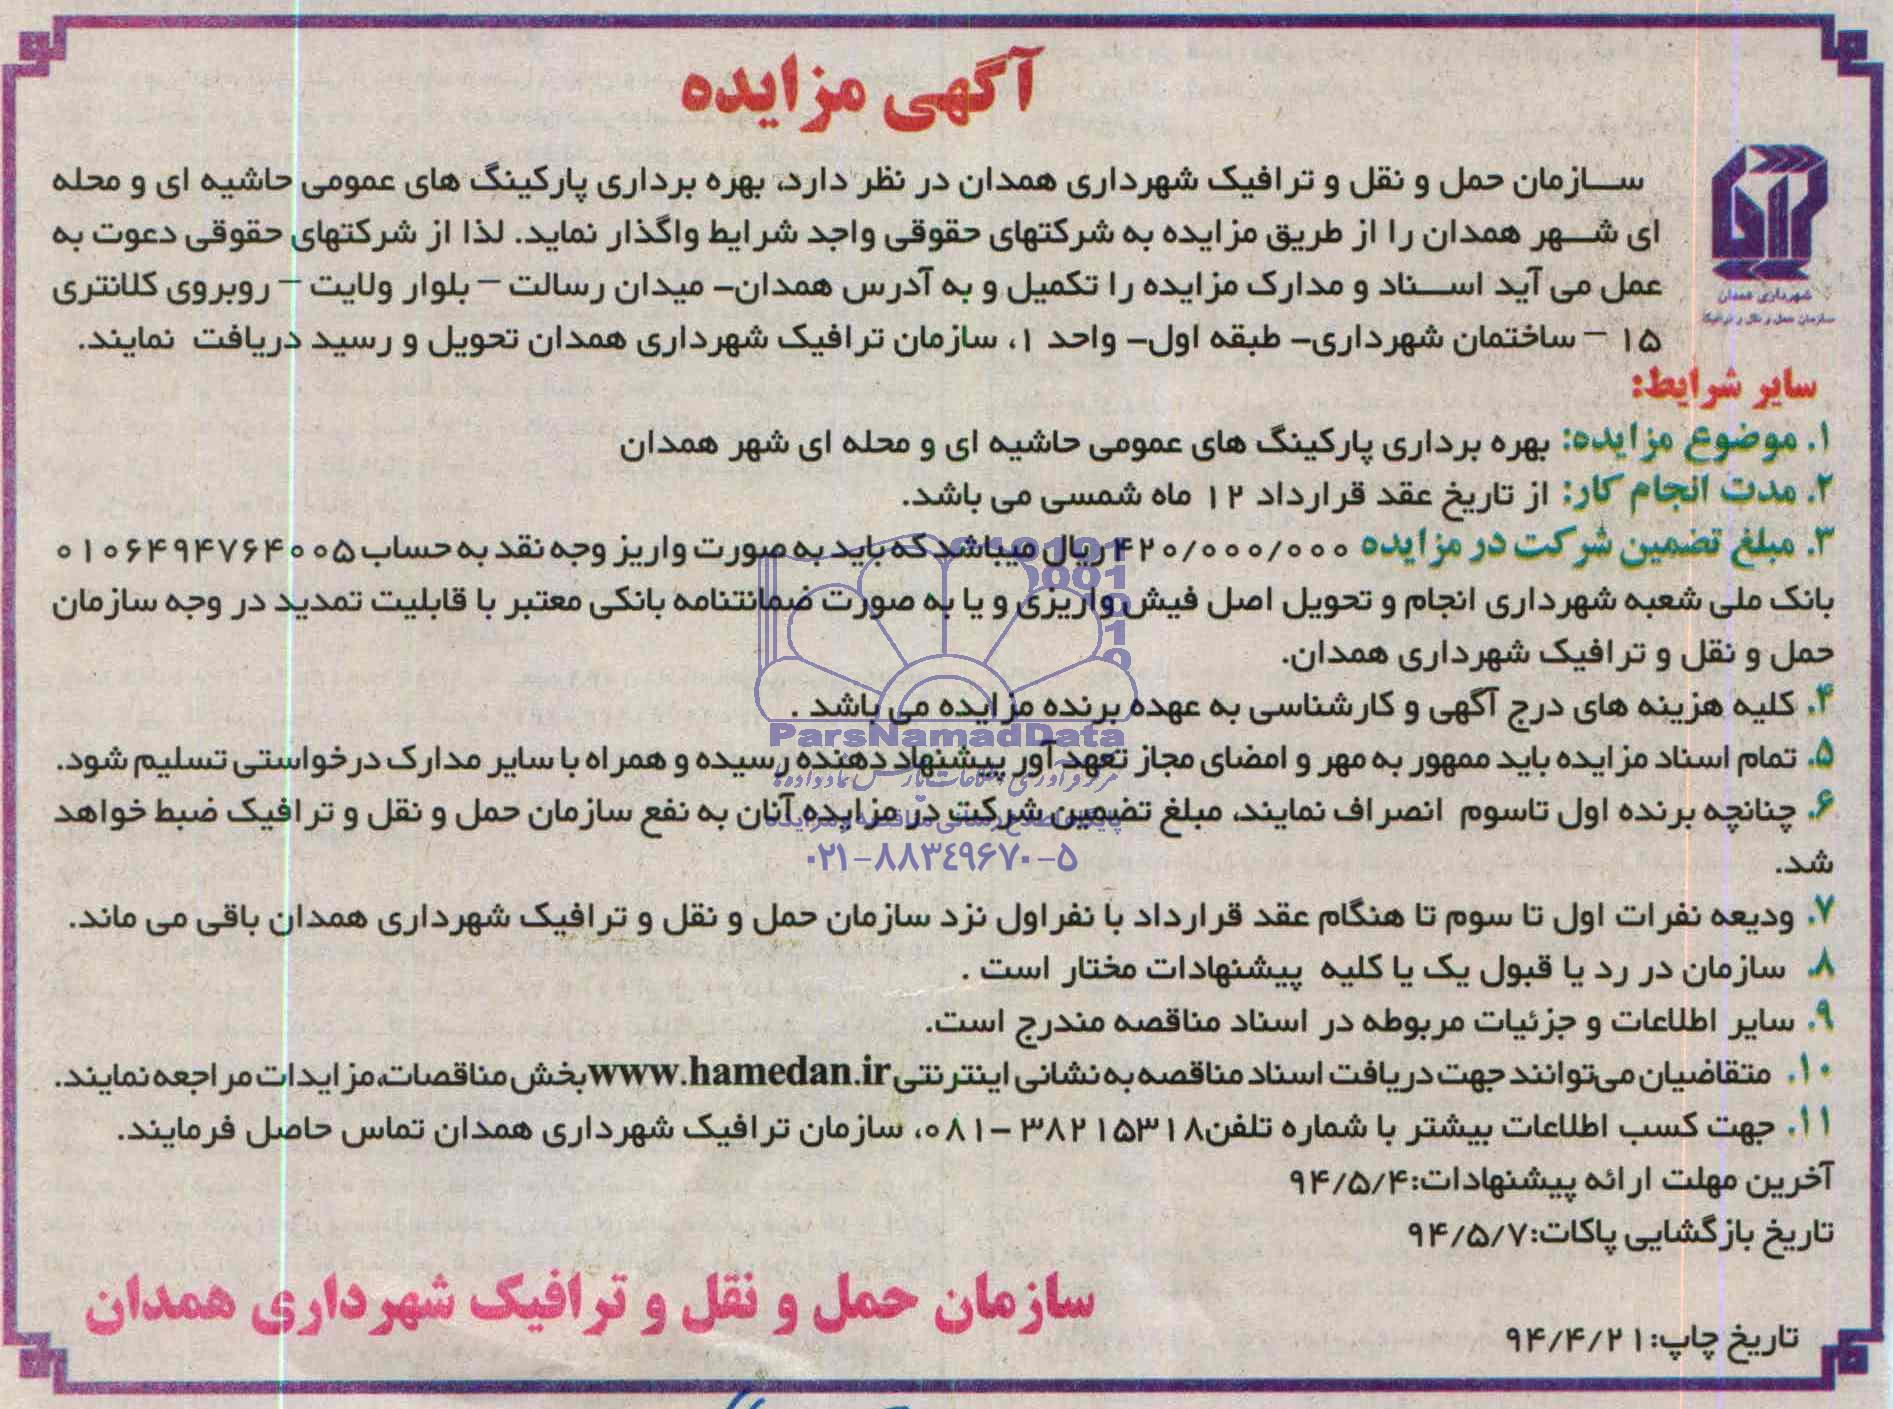 آگهی مزایده
شهرداری همدان
سازمان حمل و نقل و ترافیک
ســازمان حمل و نقل و ترافیک شهرداری همدان در نظر دارد، بهره برداری پارکینگ های عمومی حاشیه ای و محله
ای شــهر همدان را از طریق مزایده به شرکتهای حقوقی واجد شرایط واگذار نماید. لذا از شرکتهای حقوقی دعوت به
عمل می آید اســناد و مدارک مزایده را تکمیل و به آدرس همدان- میدان رسالت – بلوار ولایت – روبروی کلانتری
۱۵ – ساختمان شهرداری- طبقه اول- واحد ۱، سازمان ترافیک شهرداری همدان تحویل و رسید دریافت نمایند.
سایر شرایط:
۱. موضوع مزایده: بهره برداری پارکینگ های عمومی حاشیه ای و محله ای شهر همدان
۲. مدت انجام کار: از تاریخ عقد قرارداد ۱۲ ماه شمسی می باشد.
۳. مبلغ تضمین شرکت در مزایده ۴۲۰/۰۰۰/۰۰۰ ریال میباشد که باید به صورت واریز وجه نقد به حساب ۰۱۰۶۴۹۴۷۶۴۰۰۵
بانک ملی شعبه شهرداری انجام و تحویل اصل فیش واریزی و یا به صورت ضمانتنامه بانکی معتبر با قابلیت تمدید در وجه سازمان
حمل و نقل و ترافیک شهرداری همدان.
۴. کلیه هزینه های درج آگهی و کارشناسی به عهده برنده مزایده می باشد .
ParsNamadData
۵. تمام اسناد مزایده باید ممهور به مهر و امضای مجاز تعهد آور پیشنهاد دهنده رسیده و همراه با سایر مدارک درخواستی تسلیم شود.
مرکز فرآوری اطلاعات پارس نماد داده ها
۶. چنانچه برنده اول تاسوم انصراف نمایند، مبلغ تضمین شرکت در مزایده آنان به نفع سازمان حمل و نقل و ترافیک ضبط خواهد
پایگاه اطلاع رسانی مناقصه و مزایده
شد.
۰۲۱-۸۸۳۴۹۶۷۰-۵
۷. ودیعه نفرات اول تا سوم تا هنگام عقد قرارداد با نفراول نزد سازمان حمل و نقل و ترافیک شهرداری همدان باقی می ماند.
۸. سازمان در رد یا قبول یک یا کلیه پیشنهادات مختار است .
۹. سایر اطلاعات و جزئیات مربوطه در اسناد مناقصه مندرج است.
۱۰. متقاضیان می‌توانند جهت دریافت اسناد مناقصه به نشانی اینترنتی www.hamedan.ir بخش مناقصات،مزایدات مراجعه نمایند.
۱۱. جهت کسب اطلاعات بیشتر با شماره تلفن۳۸۲۱۵۳۱۸ -۰۸۱، سازمان ترافیک شهرداری همدان تماس حاصل فرمایند.
آخرین مهلت ارائه پیشنهادات:۹۴/۵/۴
تاریخ بازگشایی پاکات:۹۴/۵/۷
سازمان حمل و نقل و ترافیک شهرداری همدان
تاریخ چاپ:۹۴/۴/۲۱